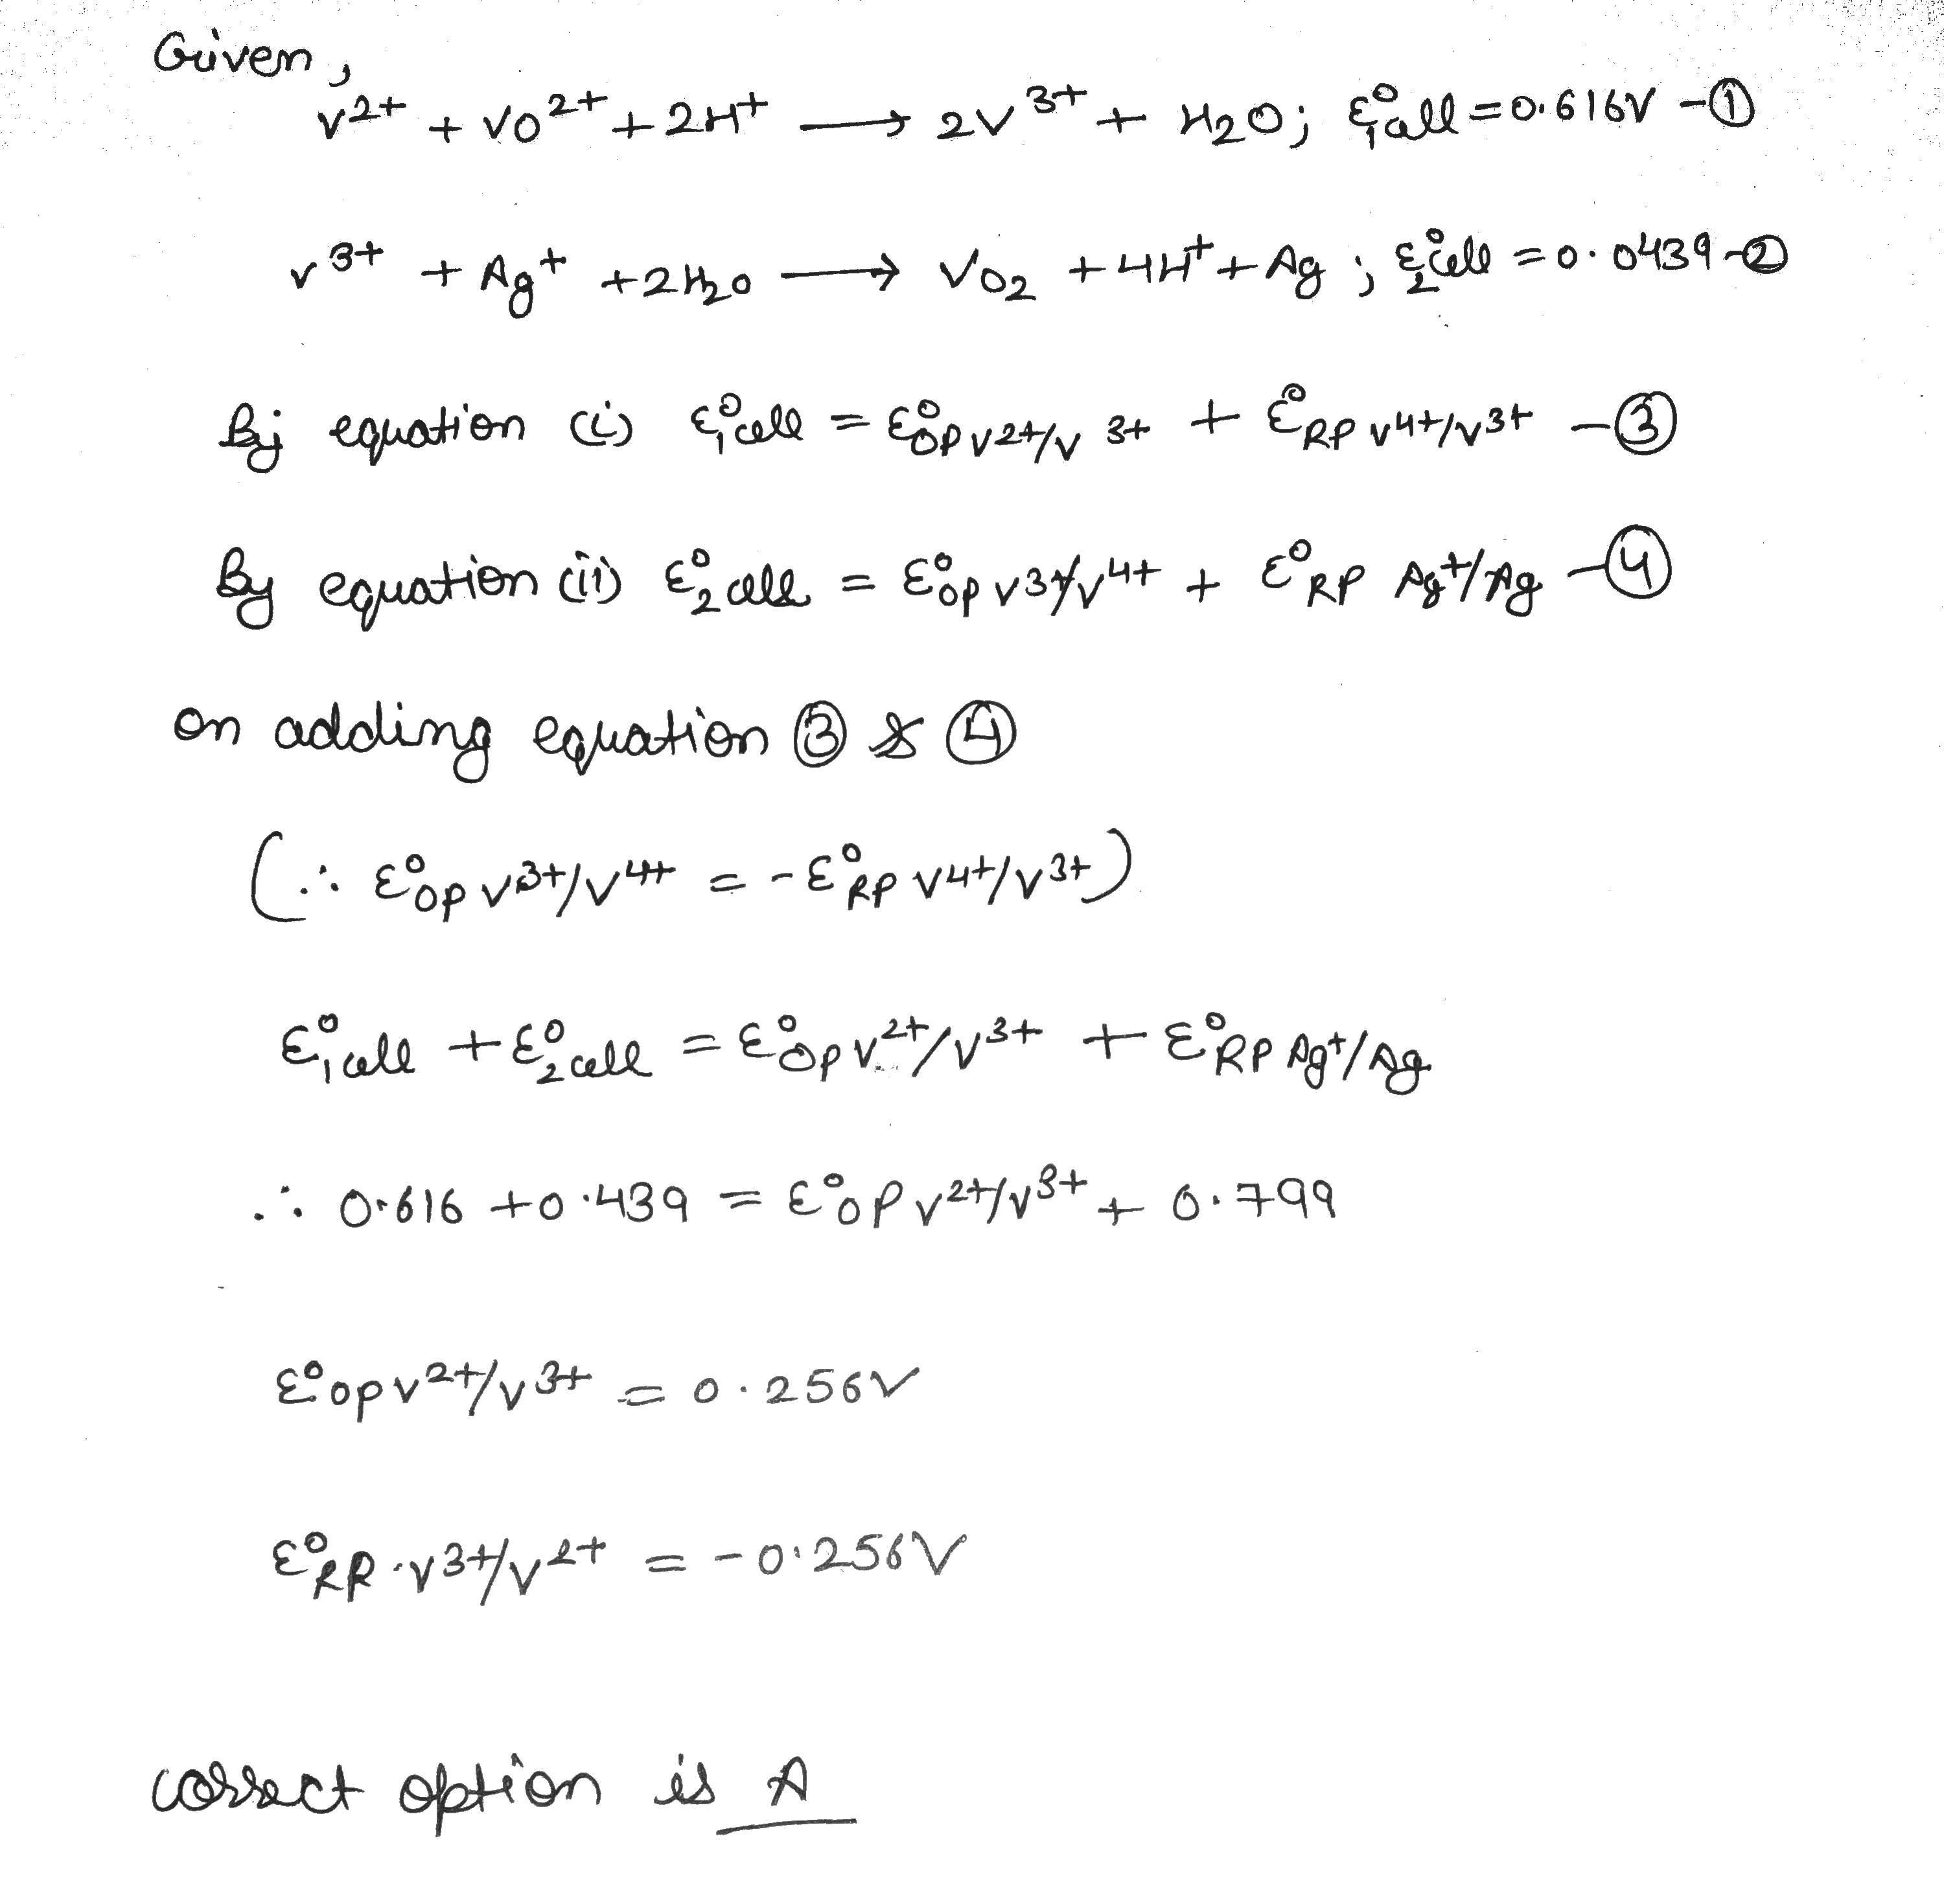 Given,
V²⁺ + VO²⁺ + 2H⁺ ⟶ 2V³⁺ + H₂O; Ɛ₁°cell = 0.616V -①
V³⁺ + Ag⁺ + 2H₂O ⟶ VO₂ + 4H⁺ + Ag ; Ɛ₂°cell = 0.0439 -②
By equation (i) Ɛ₁°cell = Ɛ°OP V²⁺/V³⁺ + Ɛ°RP V⁴⁺/V³⁺ -③
By equation (ii) Ɛ₂°cell = Ɛ°OP V³⁺/V⁴⁺ + Ɛ°RP Ag⁺/Ag -④
on adding equation ③ & ④
(∴ Ɛ°OP V³⁺/V⁴⁺ = -Ɛ°RP V⁴⁺/V³⁺)
Ɛ₁°cell + Ɛ₂°cell = Ɛ°OP V²⁺/V³⁺ + Ɛ°RP Ag⁺/Ag
∴ 0.616 + 0.439 = Ɛ°OP V²⁺/V³⁺ + 0.799
Ɛ°OP V²⁺/V³⁺ = 0.256V
Ɛ°RP V³⁺/V²⁺ = -0.256V
correct option is A